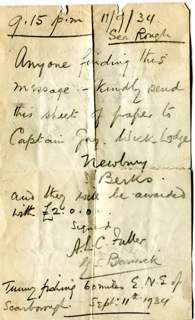 9.15 p.m 11/9/34.
Sea Rough
Anyone finding this
message - kindly send
this sheet of paper to
Captain Wick Lodge
Newbury
Berks.
and they will be awarded
with £2.0.0.
Signed
A.C. Fuller
Tunny fishing 60 miles E.N.E of
Scarborough. Sept. 11th 1934